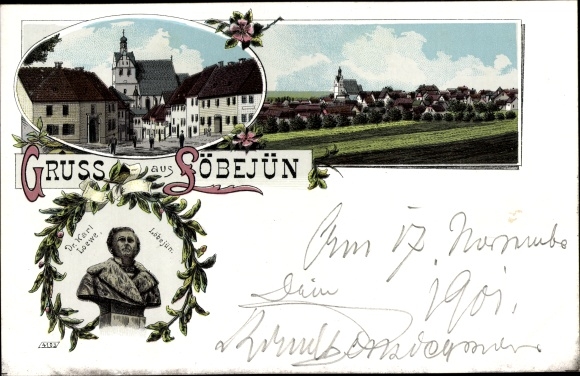 GRUSS aus LÖBEJÜN
Dr. Karl
Loewe.
Löbejün.
Am 17. November
Dein 1901.